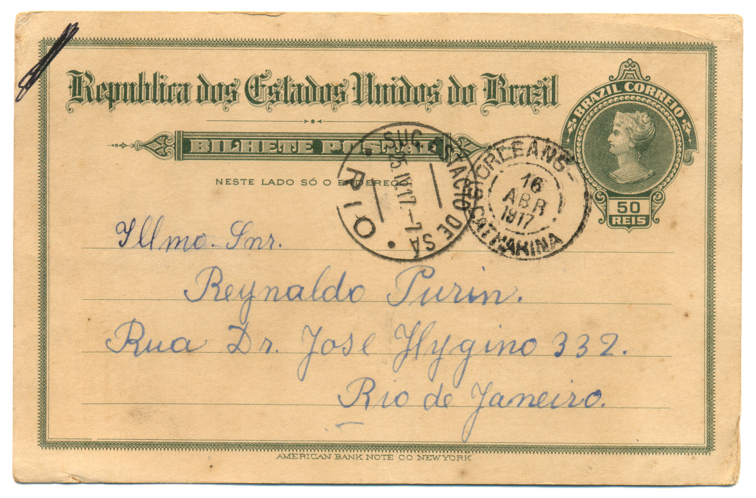 Republica dos Estados Unidos do Brazil
BILHETE POSTAL
NESTE LADO SÓ O ENDEREÇO
BRAZIL CORREIO
50
REIS
SUC. ESTACIO DE SÁ
25 IV 17.-7
RIO
ORLEANS-
16
ABR
1917
CATHARINA
Illmo. Snr.
Reynaldo Purin.
Rua Dr. José Hygino 332.
Rio de Janeiro.
AMERICAN BANK NOTE CO. NEW YORK